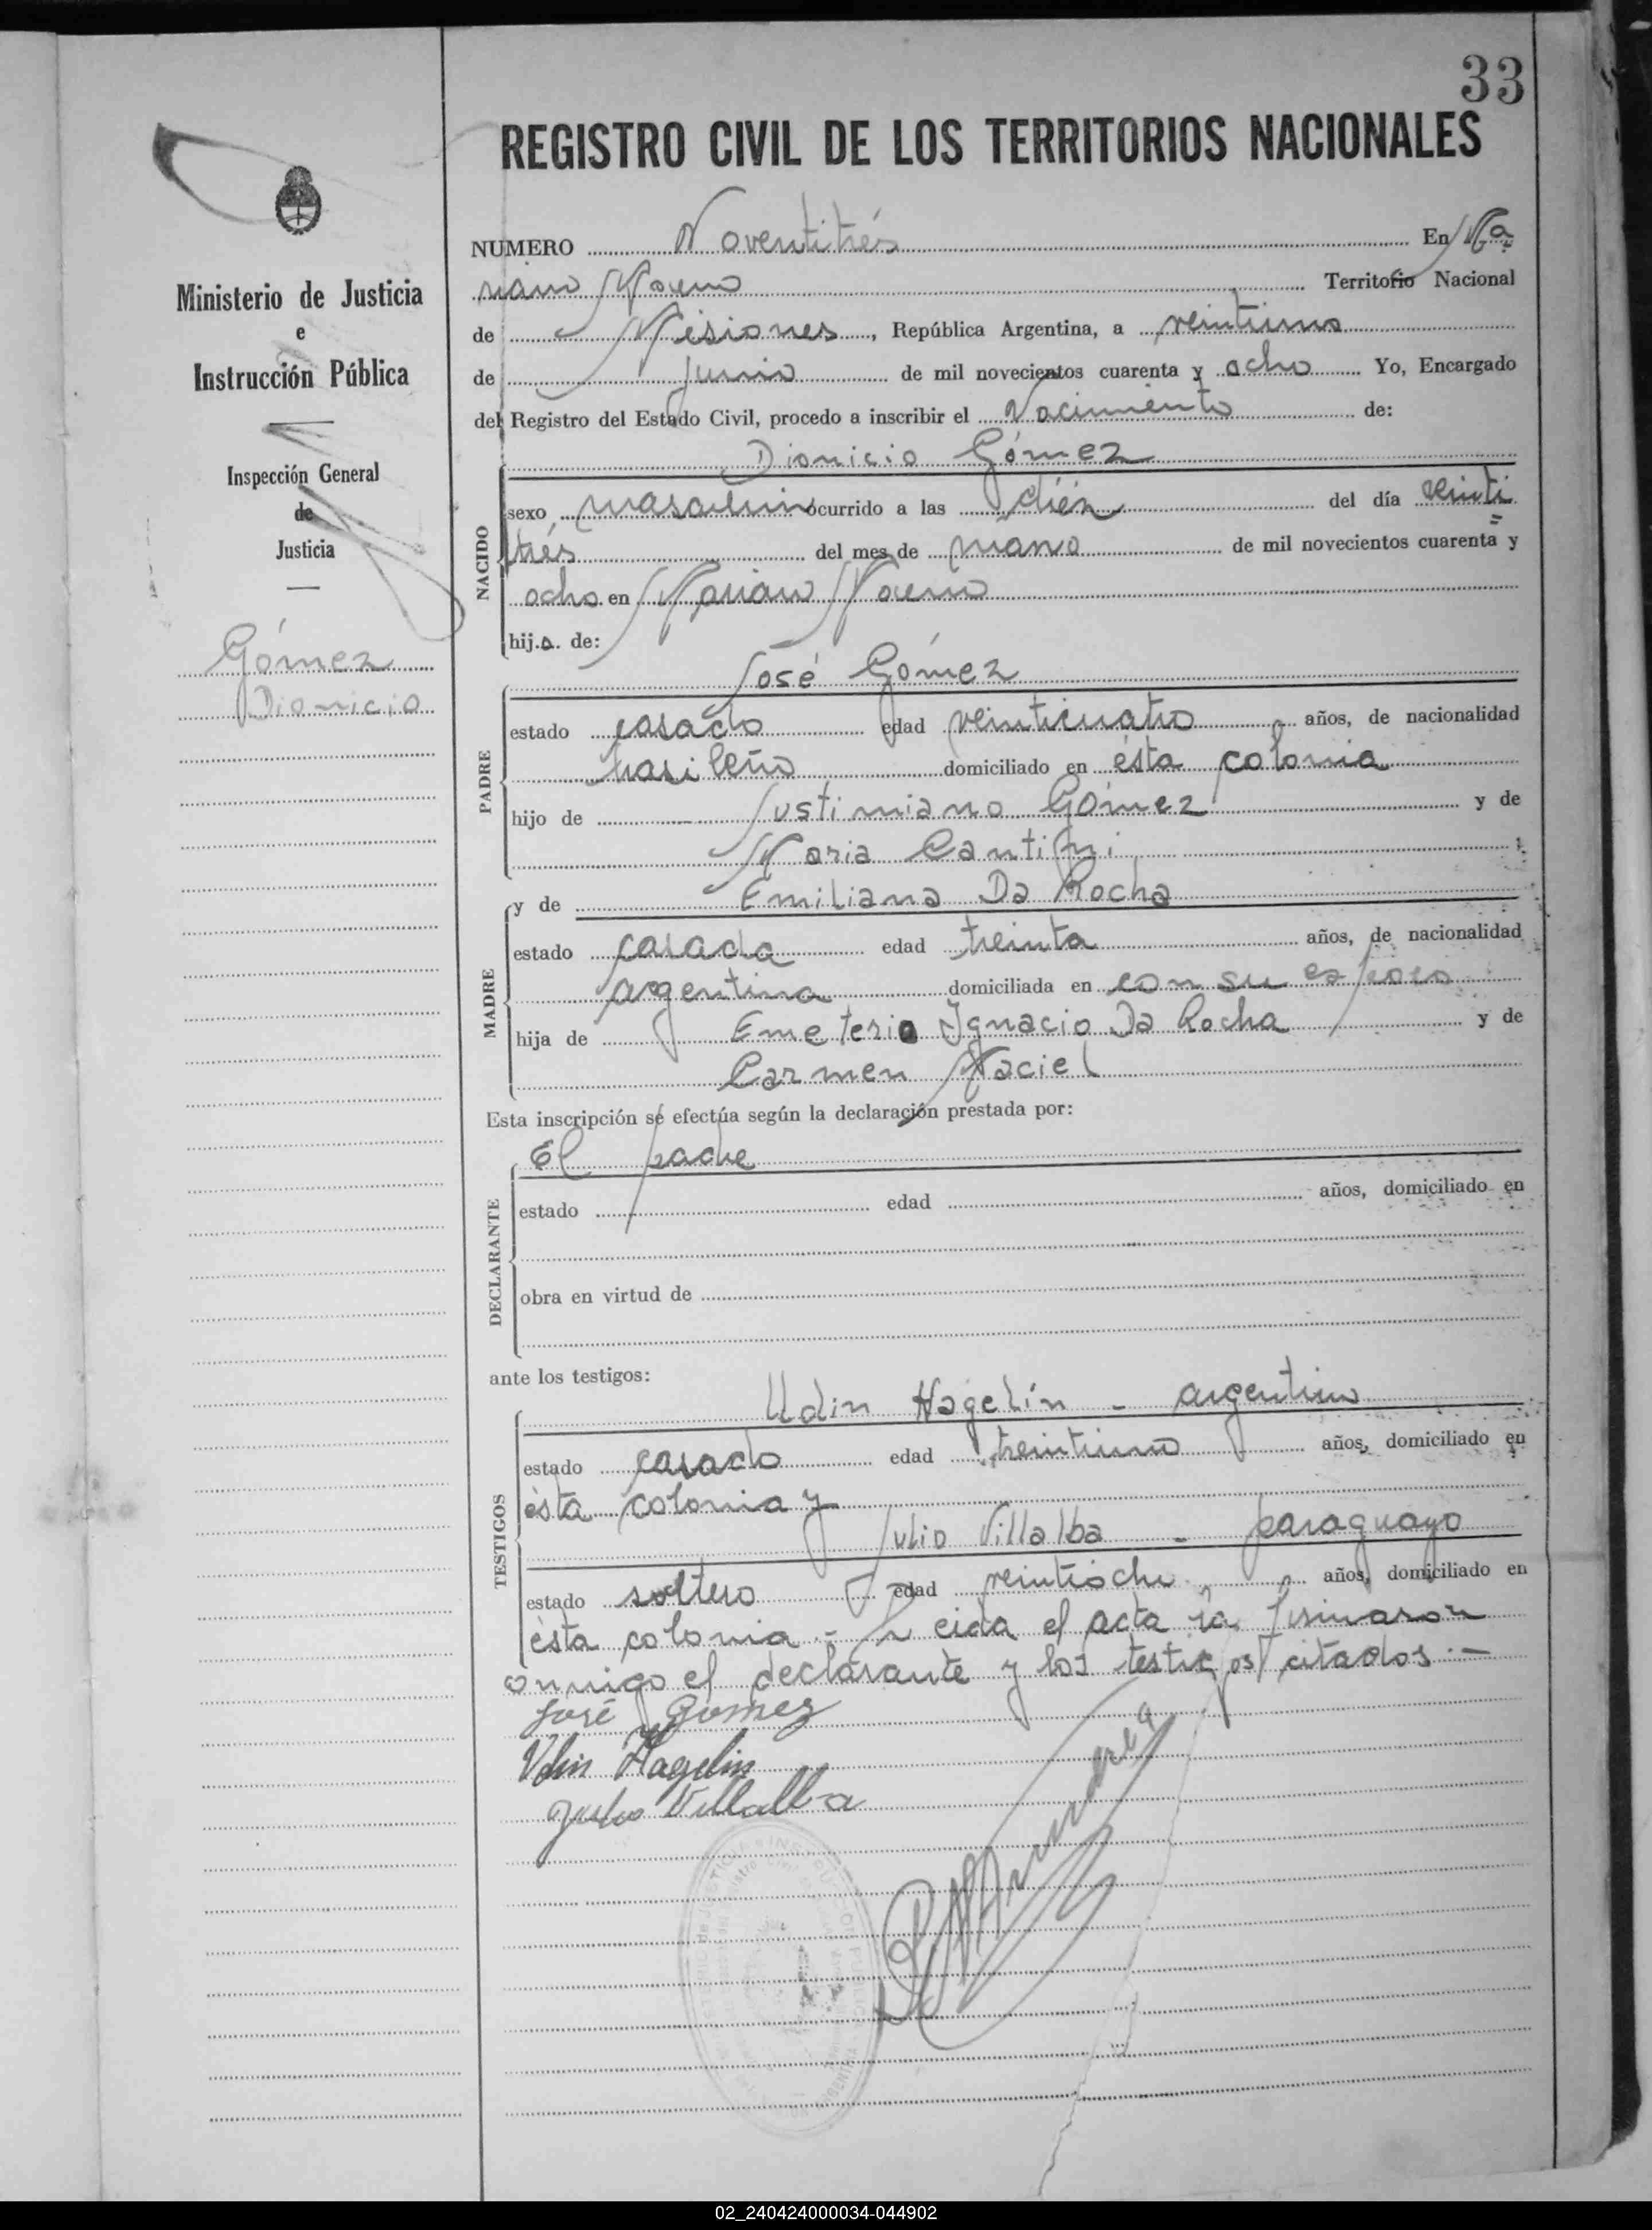 33
REGISTRO CIVIL DE LOS TERRITORIOS NACIONALES
NUMERO Noventitrés En Ma
riano Moreno Territorio Nacional
de Misiones, República Argentina, a veintiuno
de junio de mil novecientos cuarenta y ocho Yo, Encargado
del Registro del Estado Civil, procedo a inscribir el Nacimiento de:
Dionicio Gómez
NACIDO
sexo masculino ocurrido a las diéz del día veinti
trés del mes de marzo de mil novecientos cuarenta y
ocho en Mariano Moreno
hijo de:
José Gómez
PADRE
estado casado edad veinticuatro años, de nacionalidad
brasileño domiciliado en ésta colonia
hijo de Justimiano Gómez y de
Maria
y de Emiliana Da Rocha
MADRE
estado casada edad treinta años, de nacionalidad
argentina domiciliada en con su esposo
hija de Emeterio Ignacio Da Rocha y de
Carmen Maciel
Esta inscripción se efectúa según la declaración prestada por:
El padre
DECLARANTE
estado edad años, domiciliado en
obra en virtud de
ante los testigos:
Udin Hagelín - argentino
TESTIGOS
estado casado edad treintiuno años, domiciliado en
ésta colonia y
Julio Villalba - paraguayo
estado soltero edad veintiocho años, domiciliado en
ésta colonia - Leida el acta la firmaron
conmigo el declarante y los testigos citados.-
José Gomez
Udin Hagelin
Julio Villalba
Ministerio de Justicia
e
Instrucción Pública
Inspección General
de
Justicia
Gómez
Dionicio
02_240424000034-044902